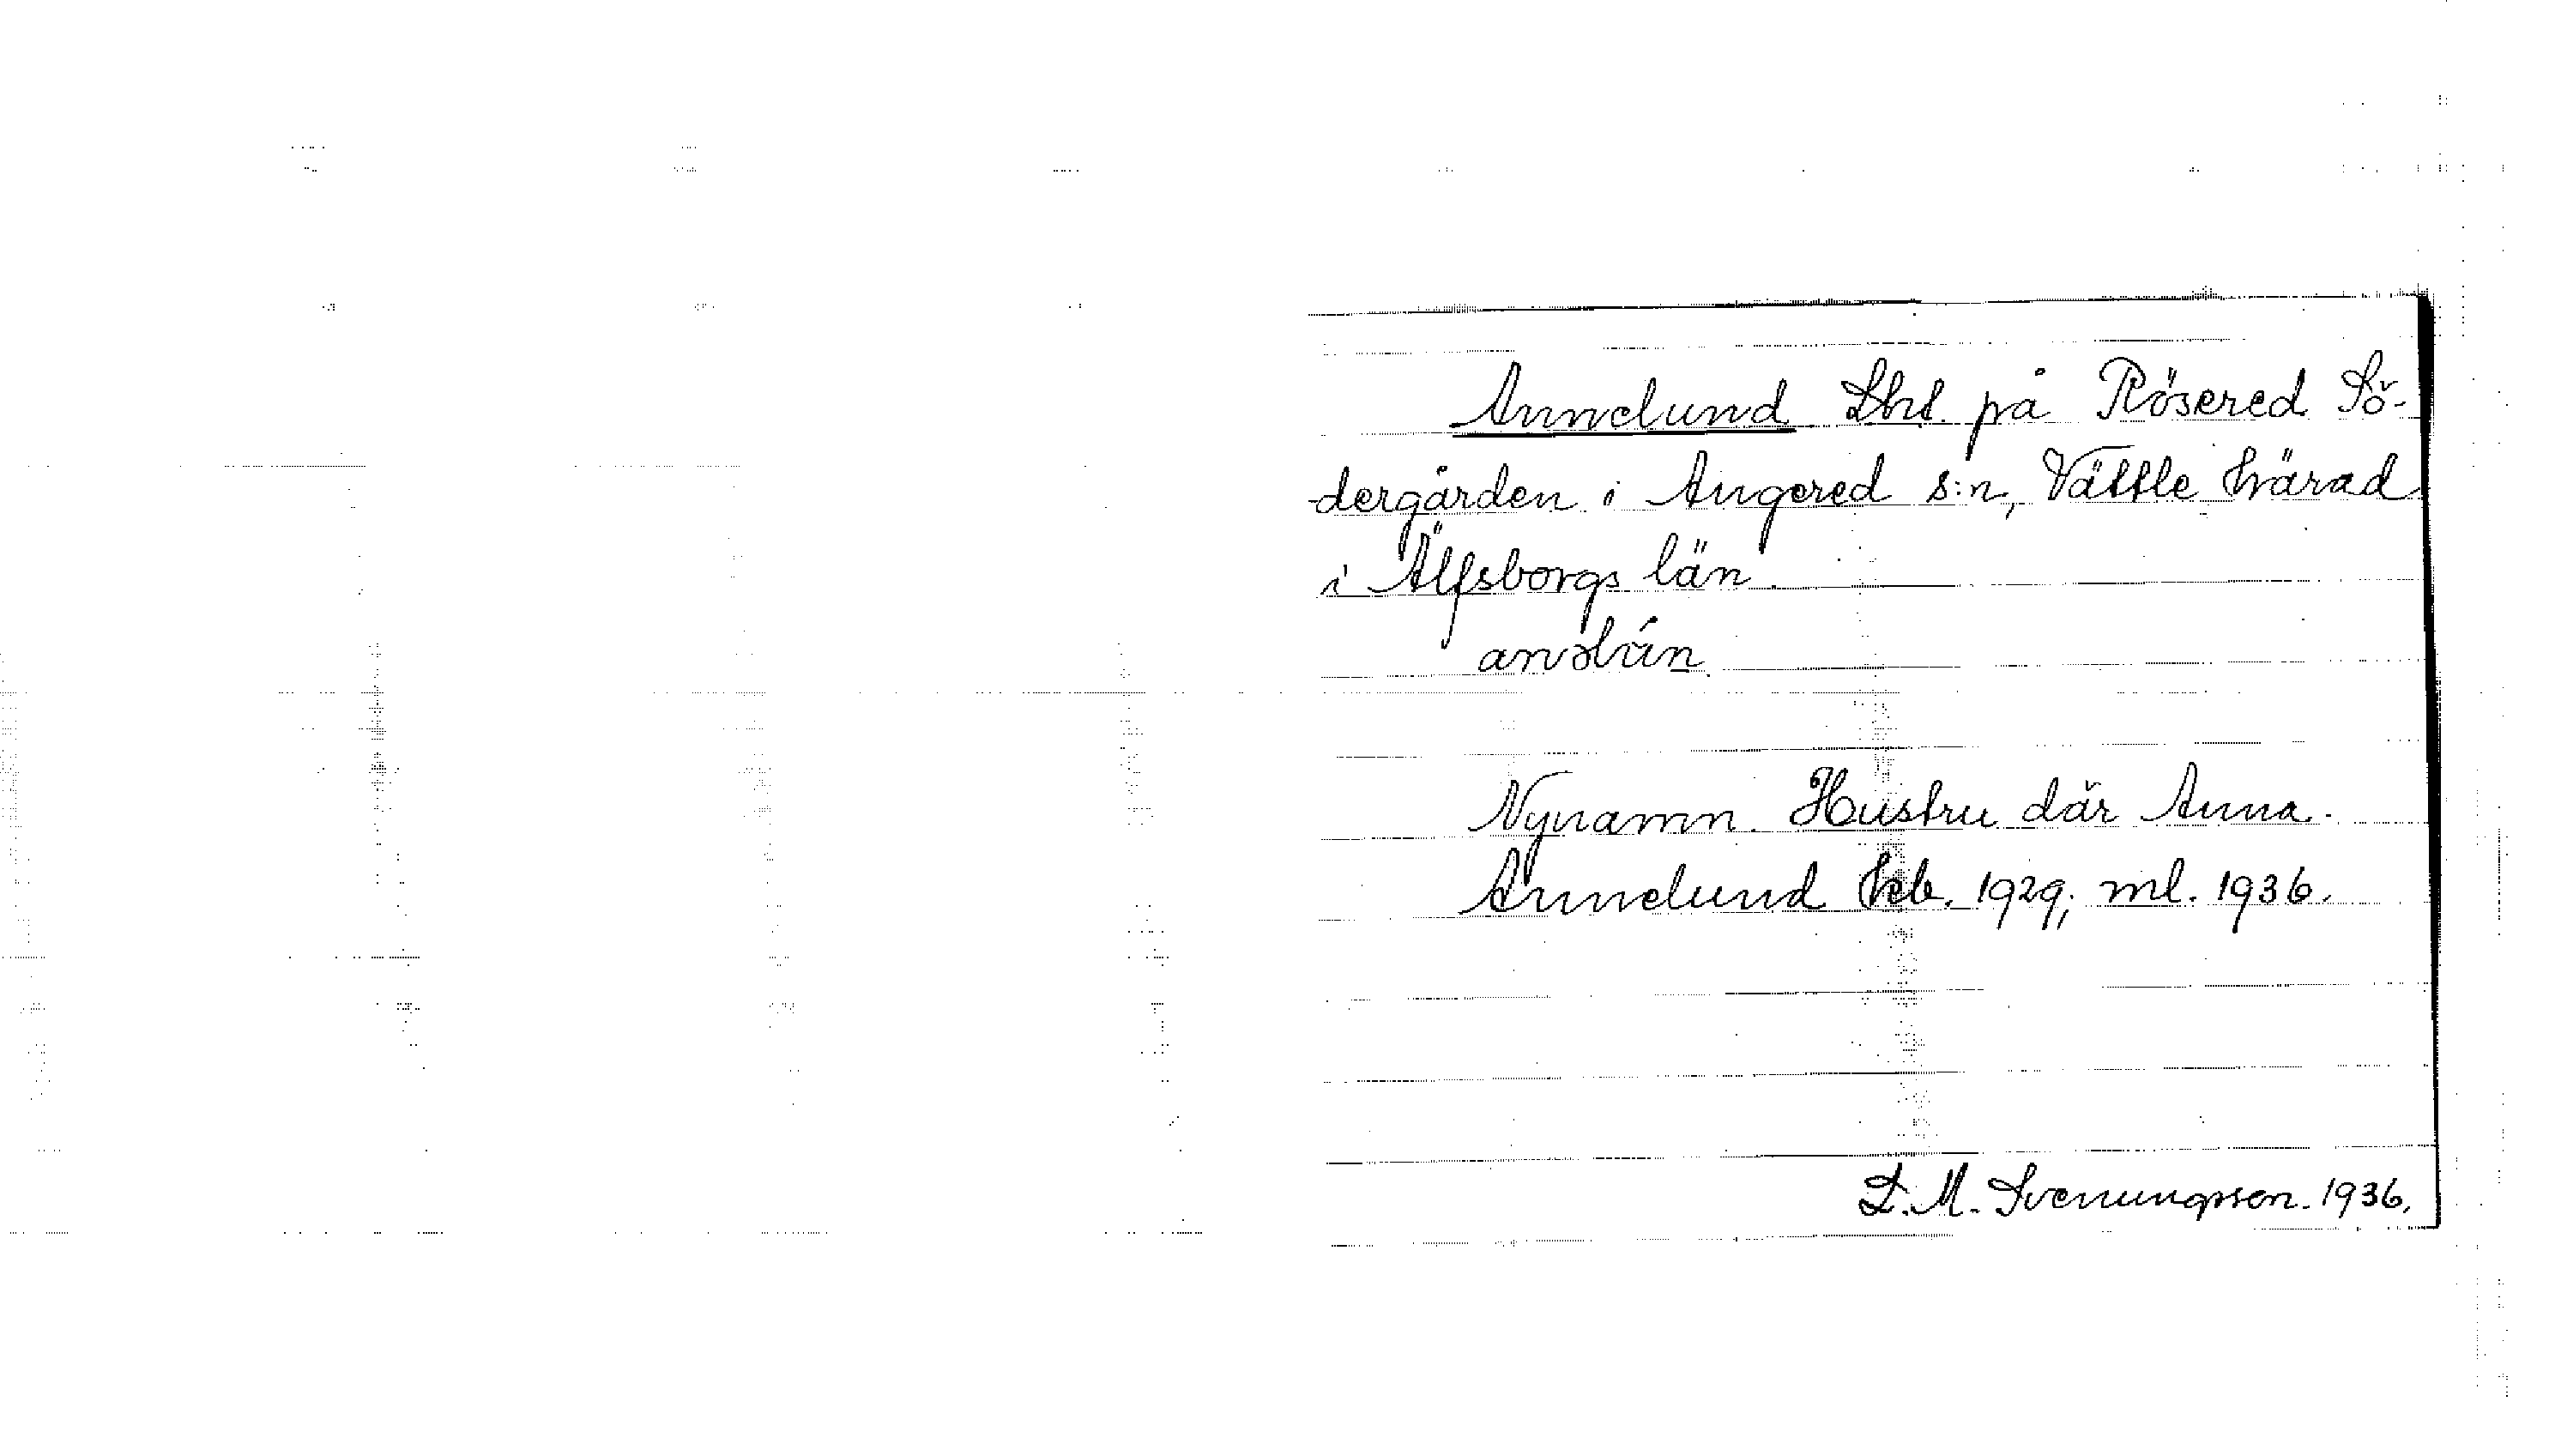 Annelund Lht. på Rösered Sö-
dergården i Angered s:n, Vättle härad
i Älfsborgs län
Nynamn. Hustru där Anna.
Annelund hcb. 1929; ml. 1936.
D. M. Svenungsson. 1936.